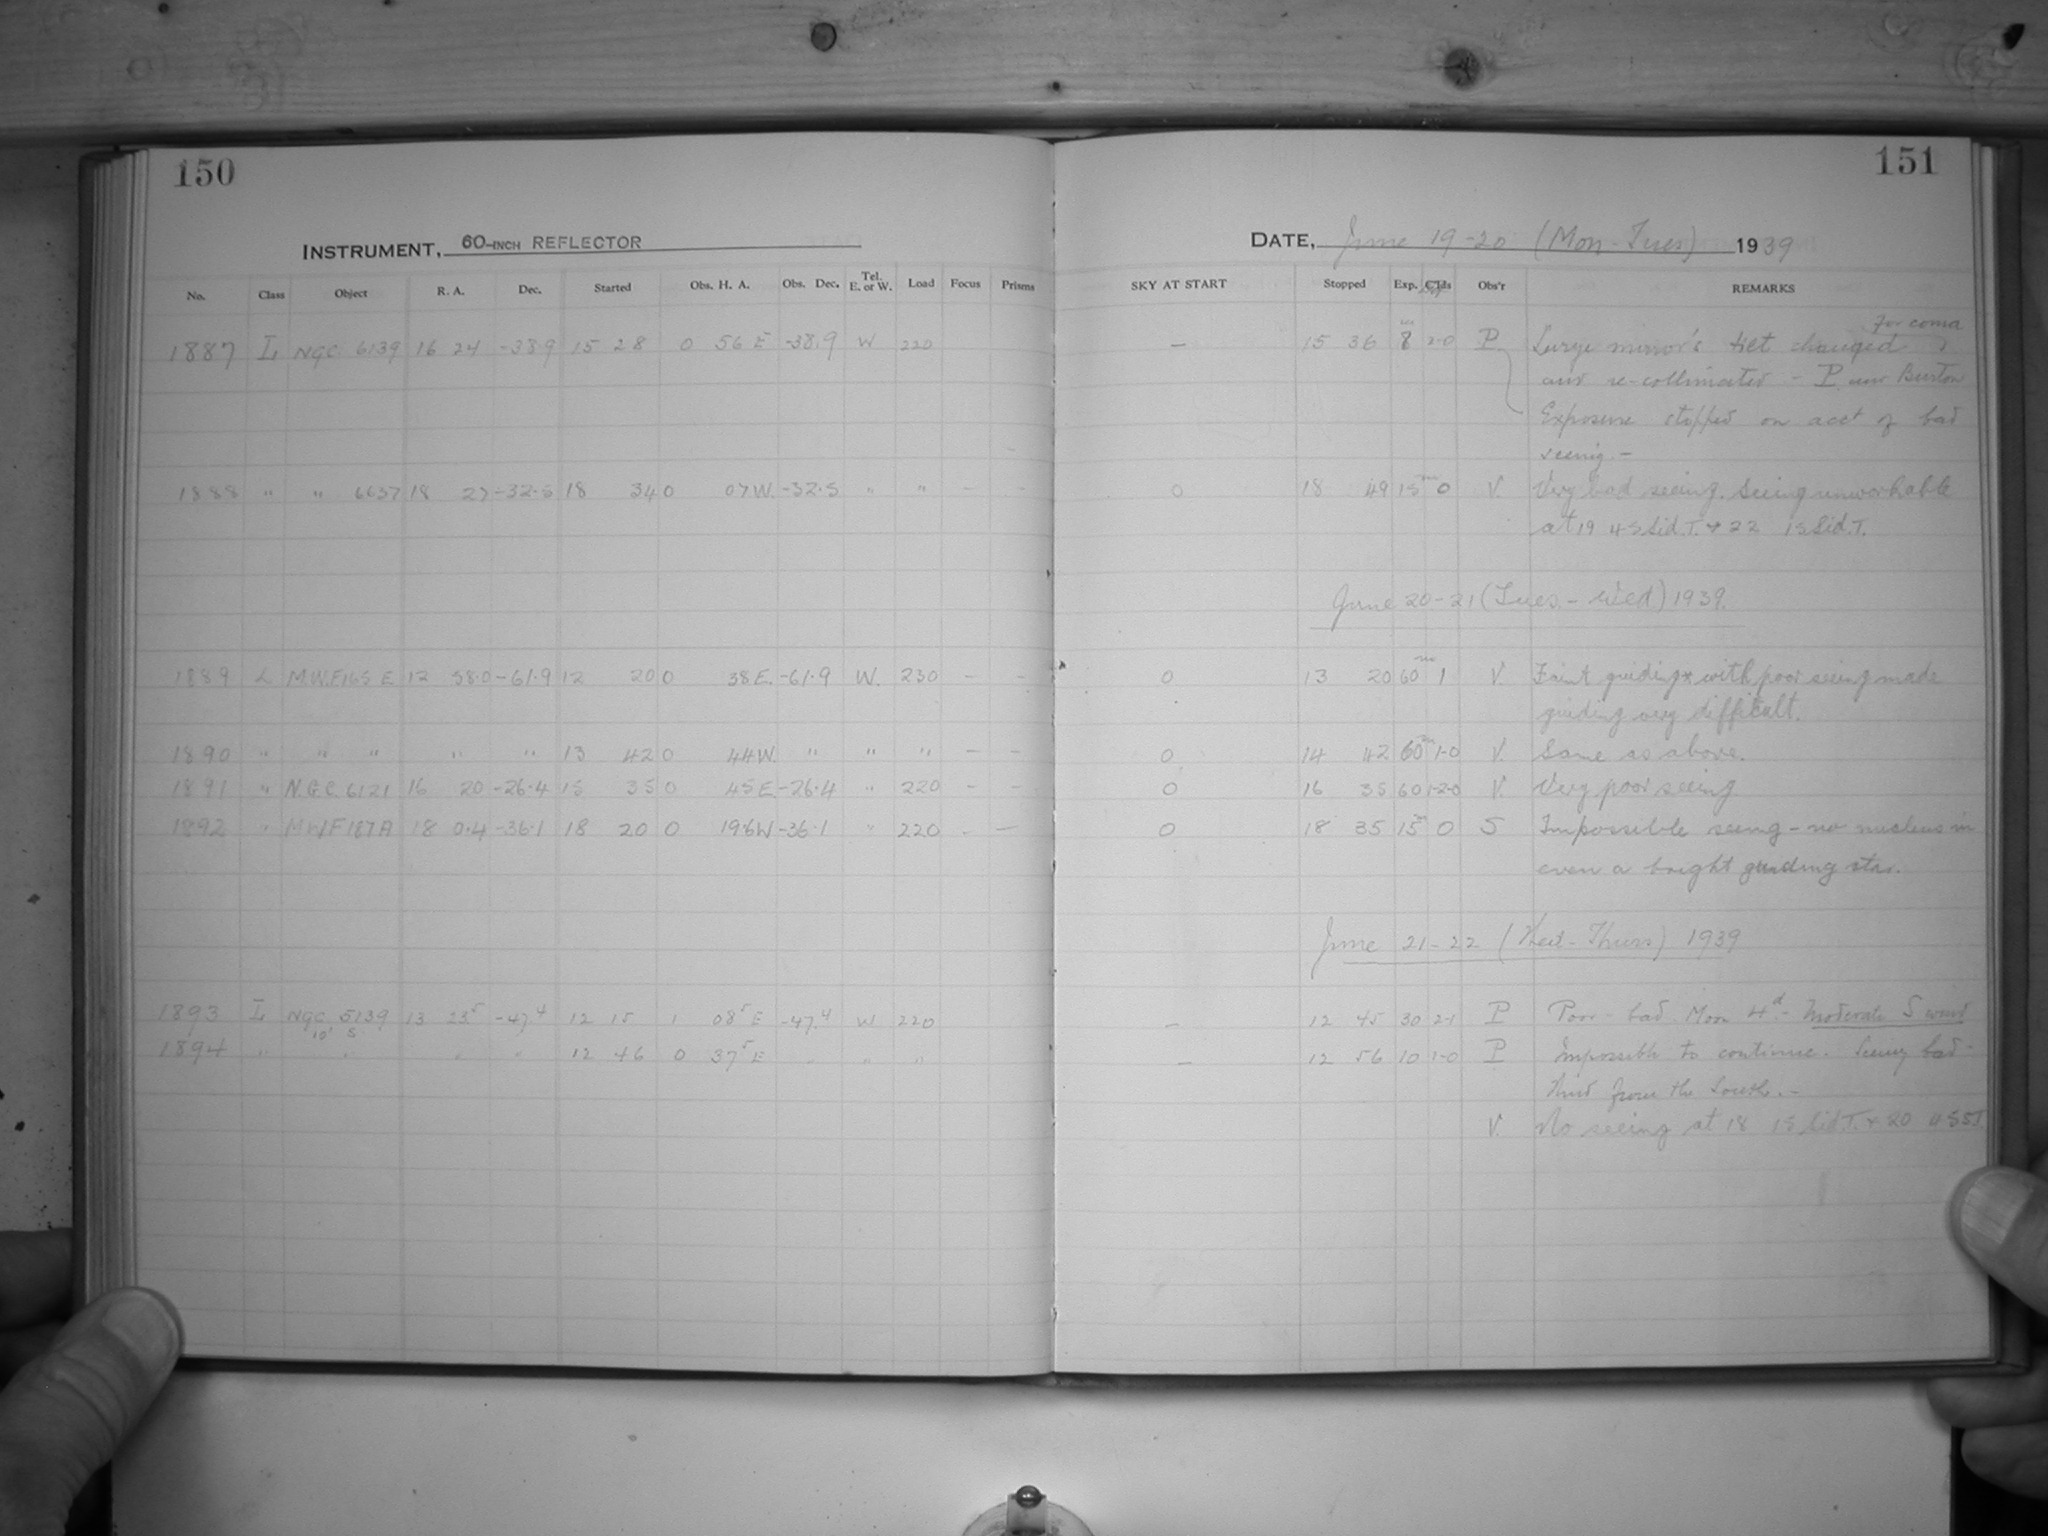 150
INSTRUMENT, 60-INCH REFLECTOR
No. Class Object R. A. Dec. Started Obs. H. A. Obs. Dec. Tel. E. or W. Load Focus Prisms
1887 L NGC 6139 16 24 -38.9 15 28 0 56 E -38.9 W 220
1888 " " 6637 18 27 -32.5 18 34 0 07 W. -32.5 " " - -
1889 L M.W.F165 E 12 58.0 -61.9 12 20 0 38 E. -61.9 W. 230 - -
1890 " " " " " 13 42 0 44 W. " " " - -
1891 " N.G.C. 6121 16 20 -26.4 15 35 0 45 E -26.4 " 220 - -
1892 " MWF 187A 18 0.4 -36.1 18 20 0 19.6W -36.1 " 220 - -
1893 L NGC 5139 13 23⁵ -47.⁴ 12 15 1 08⁵ E -47.⁴ W 220
10' S
1894 " " " " 12 46 0 37⁵ E " " "
151
DATE, June 19-20 (Mon-Tues) 1939
SKY AT START Stopped Exp. Obs'r REMARKS
- 15 36 8 2-0 P Large mirror's tilt changed for coma
and re-collimated - P and Burton
Exposure stopped on acct of bad
seeing. -
0 18 49 15 0 V. Very bad seeing. Seeing unworkable
at 19 45 Sid.T. + 22 15 Sid.T.
June 20-21 (Tues. - Wed) 1939.
0 13 20 60 1 V. Faint guiding * with poor seeing made
guiding very difficult.
0 14 42 60 1-0 V. Same as above.
0 16 35 60 1-2-0 V. Very poor seeing
0 18 35 15 0 S Impossible seeing - no nucleus in
even a bright guiding star.
June 21-22 (Wed - Thurs) 1939
- 12 45 30 2-1 P Poor - bad. Moon 4ᵈ - Moderate S wind
- 12 56 10 1-0 P Impossible to continue. Seeing bad -
Wind from the South. -
V. No seeing at 18 15 Sid.T. + 20 45 ST